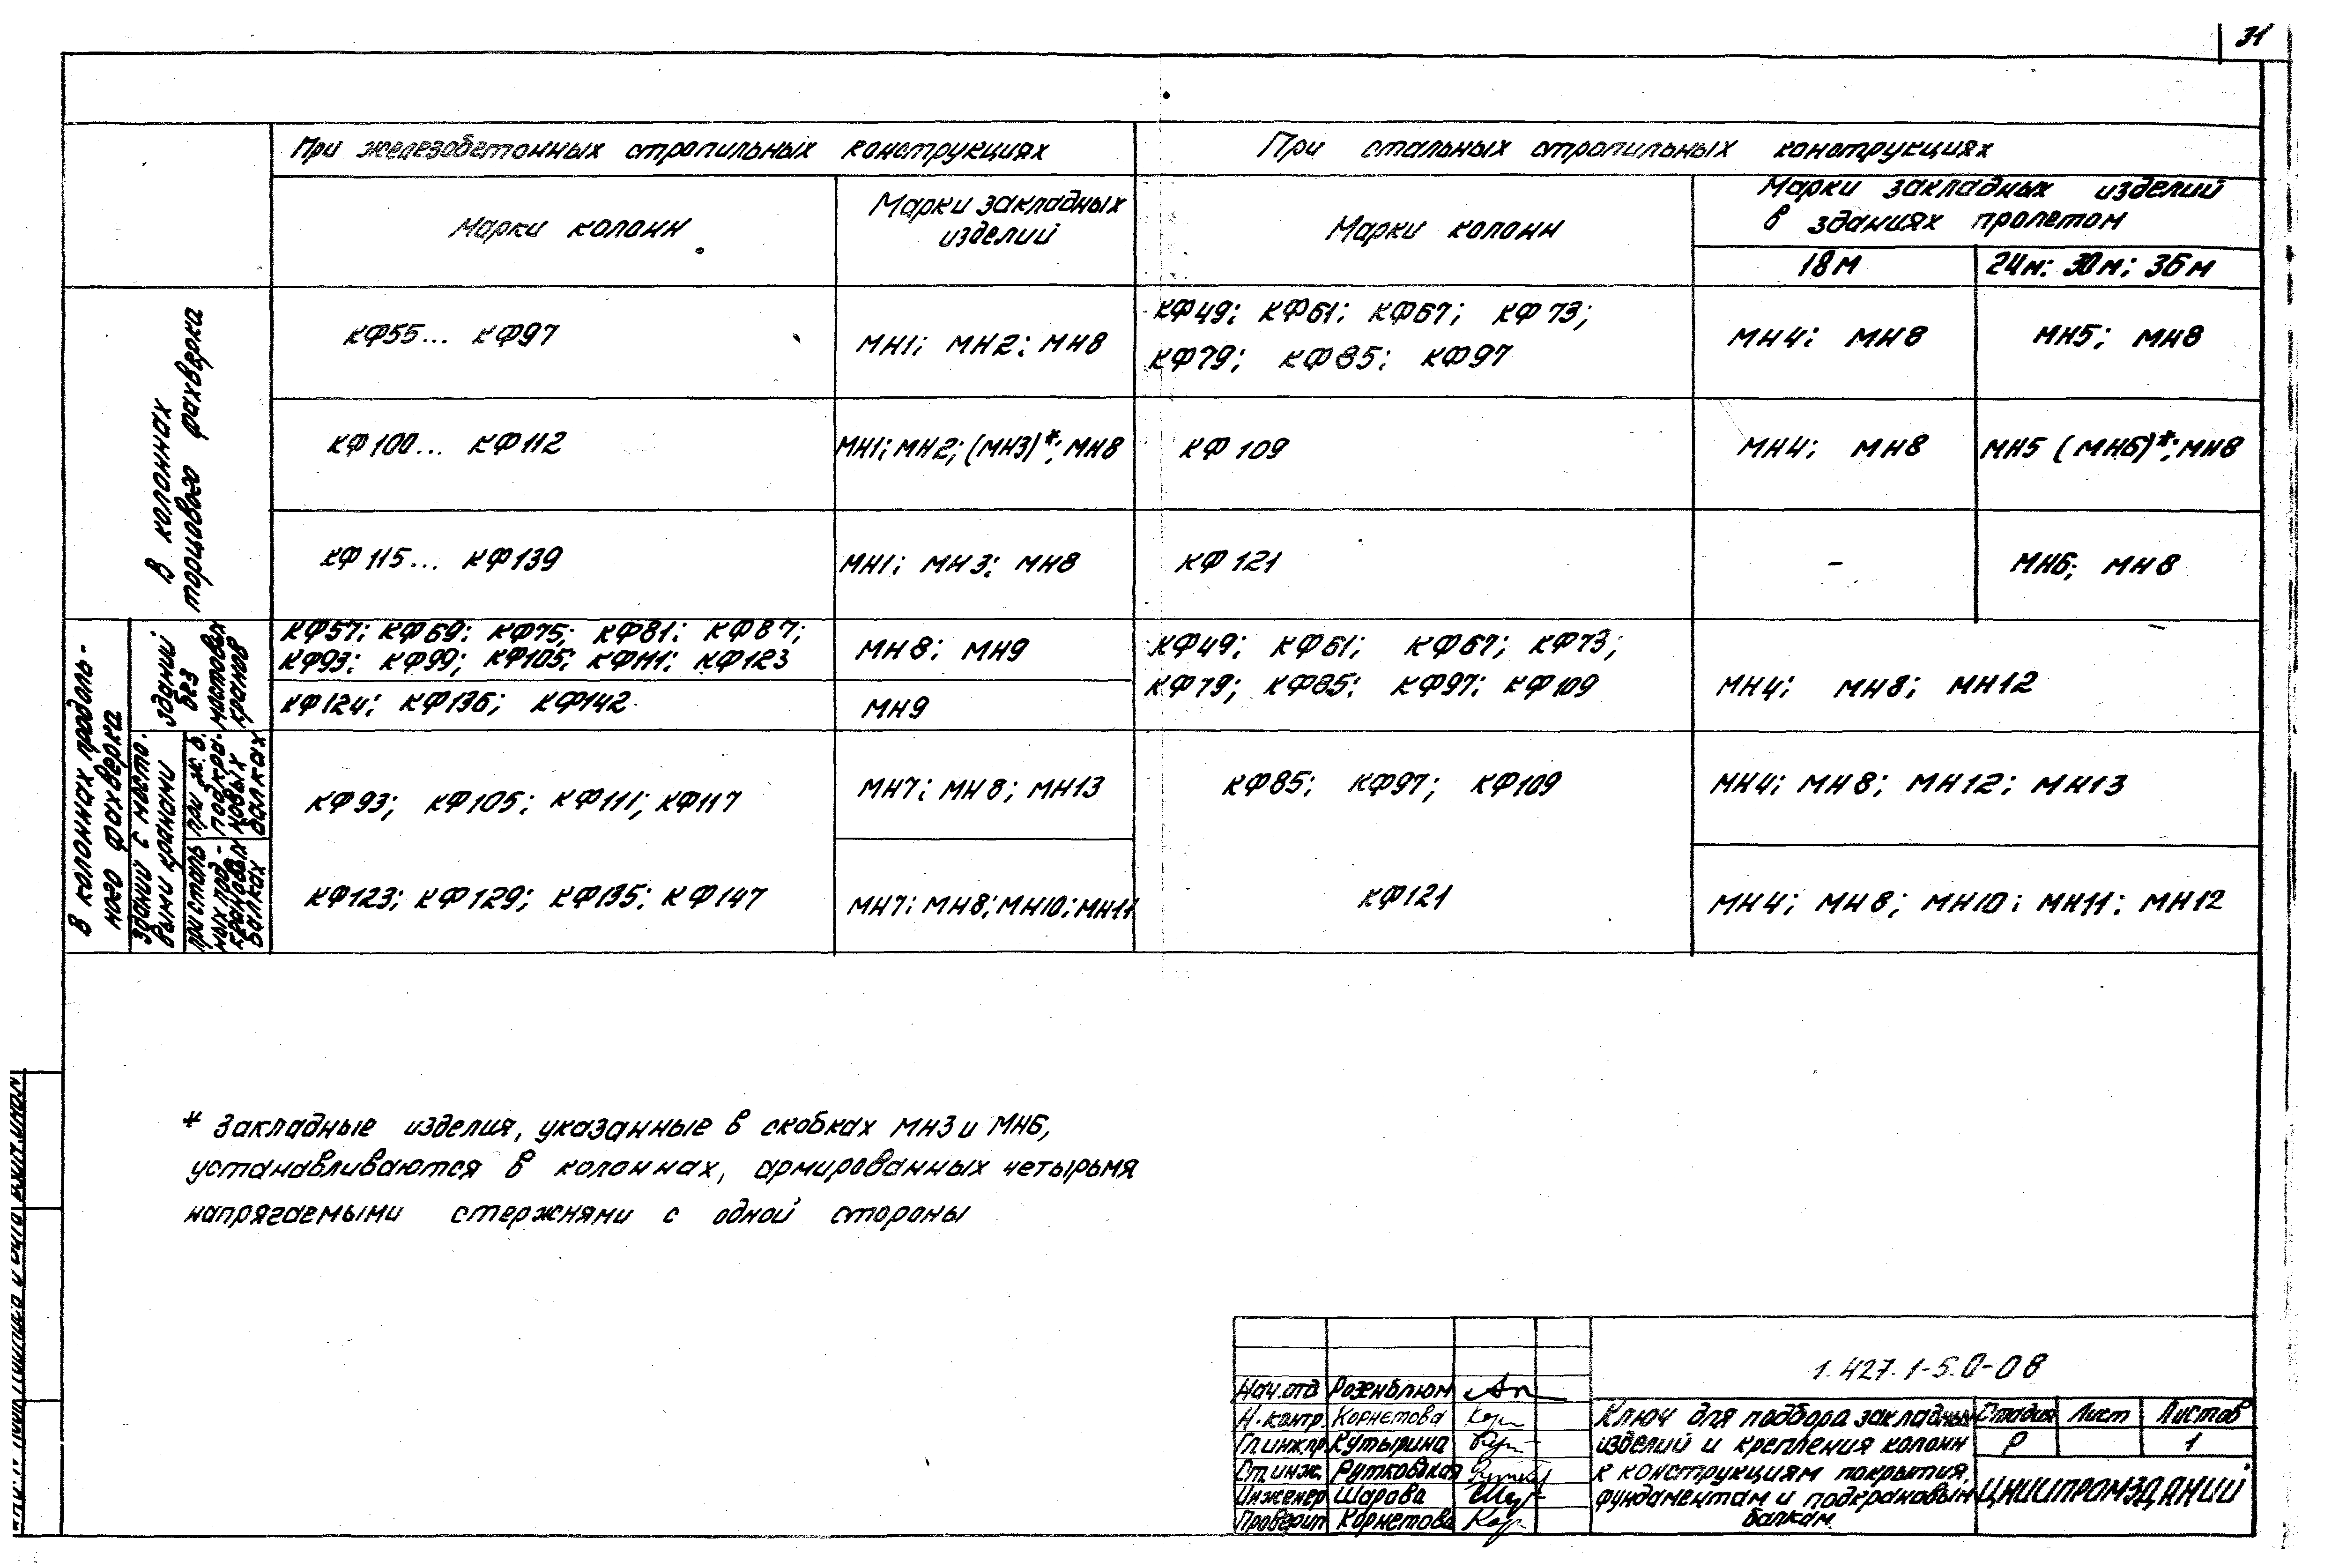 31
При железобетонных стропильных конструкциях
При стальных стропильных конструкциях
Марки колонн
Марки закладных
изделий
Марки колонн
Марки закладных изделий
в зданиях пролетом
18м
24м; 30м; 36м
В колоннах
торцового фахверка
КФ55... КФ97
МН1; МН2; МН8
КФ49; КФ61; КФ67; КФ73;
КФ79; КФ85; КФ97
МН4; МН8
МН5; МН8
КФ100... КФ112
МН1; МН2; (МН3)*; МН8
КФ109
МН4; МН8
МН5 (МН6)*; МН8
КФ115... КФ139
МН1; МН3; МН8
КФ121
-
МН6; МН8
В колоннах продоль-
ного фахверка
зданий
без
мостовых
кранов
КФ57; КФ69; КФ75; КФ81; КФ87;
КФ93; КФ99; КФ105; КФ111; КФ123
МН8; МН9
КФ124; КФ136; КФ142
МН9
КФ49; КФ61; КФ67; КФ73;
КФ79; КФ85; КФ97; КФ109
МН4; МН8; МН12
зданий с мосто-
выми кранами
при ж.б.
подкра-
новых
балках
КФ93; КФ105; КФ111; КФ117
МН7; МН8; МН13
КФ85; КФ97; КФ109
МН4; МН8; МН12; МН13
при сталь
ных под-
крановых
балках
КФ123; КФ129; КФ135; КФ147
МН7; МН8; МН10; МН11
КФ121
МН4; МН8; МН10; МН11; МН12
* Закладные изделия, указанные в скобках МН3 и МН6,
устанавливаются в колоннах, армированных четырьмя
напрягаемыми стержнями с одной стороны
1.427.1-5.0-08
Нач.отд Розенблюм
Н.контр. Корнетова
Гл.инж.пр. Кутырина
Ст.инж. Рутковская
Инженер Шарова
Проверил Корнетова
Ключ для подбора закладных
изделий и крепления колонн
к конструкциям покрытия,
фундаментам и подкрановым
балкам.
Стадия Лист Листов
Р 1
ЦНИИПРОМЗДАНИЙ